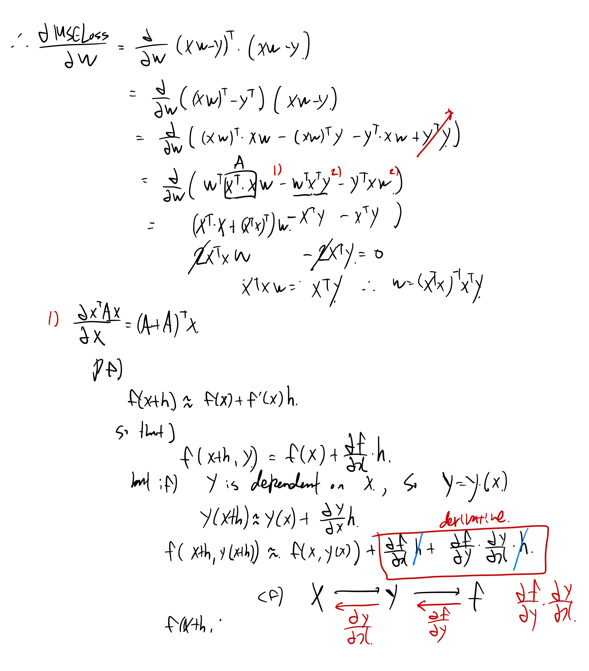 ∴ ∂MSELoss/∂w = ∂/∂w (xw-y)ᵀ · (xw-y)
= ∂/∂w ((xw)ᵀ-yᵀ) (xw-y)
= ∂/∂w ((xw)ᵀ·xw - (xw)ᵀy - yᵀ·xw + yᵀy)
A
= ∂/∂w (wᵀxᵀ·xw 1) - wᵀxᵀy 2) - yᵀxw 2))
= (xᵀ·x + (xᵀx)ᵀ)w - xᵀy - xᵀy )
2xᵀxw - 2xᵀy = 0
xᵀxw = xᵀy ∴ w = (xᵀx)⁻¹xᵀy
1) ∂xᵀAx/∂x = (A+A)ᵀx
pf)
f(x+h) ≈ f(x) + f'(x)h.
so that)
f(x+h, y) = f(x) + ∂f/∂x · h.
but if) y is dependent on x, so y=y(x)
y(x+h) ≈ y(x) + ∂y/∂x h.
derivative.
f(x+h, y(x+h)) ≈ f(x, y(x)) + ∂f/∂x h + ∂f/∂y · ∂y/∂x · h.
cf) x → y → f ∂f/∂y · ∂y/∂x
∂y/∂x ∂f/∂y
f(x+h,